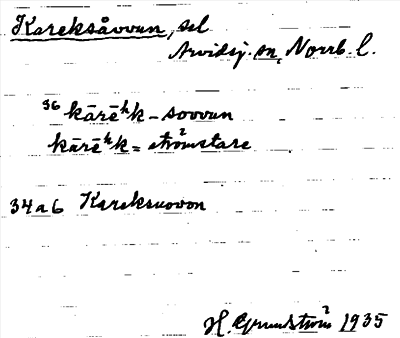 Kareksåvvun, sel
Arvidsj. sn, Norrb. l.
36 kārēʰk - sovvun
kārēʰk = strömstare
34a6 Kareksuovon
H. Grundström 1935